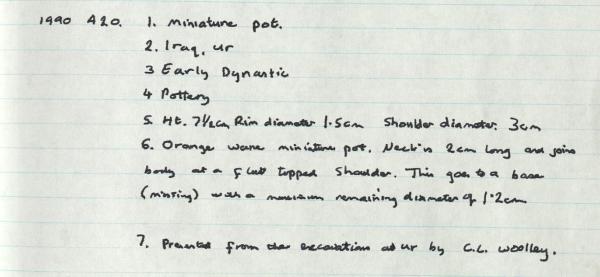 1990 A20. 1. Miniature pot.
2. Iraq, Ur
3 Early Dynastic
4 Pottery
5. Ht. 7½cm, Rim diameter 1.5cm Shoulder diameter: 3cm
6. Orange ware miniature pot. Neck is 2cm long and joins
body at a flat topped shoulder. This goes to a base
(missing) with a maximum remaining diameter of 1.2cm
7. Presented from the excavations at Ur by C.L. Woolley.